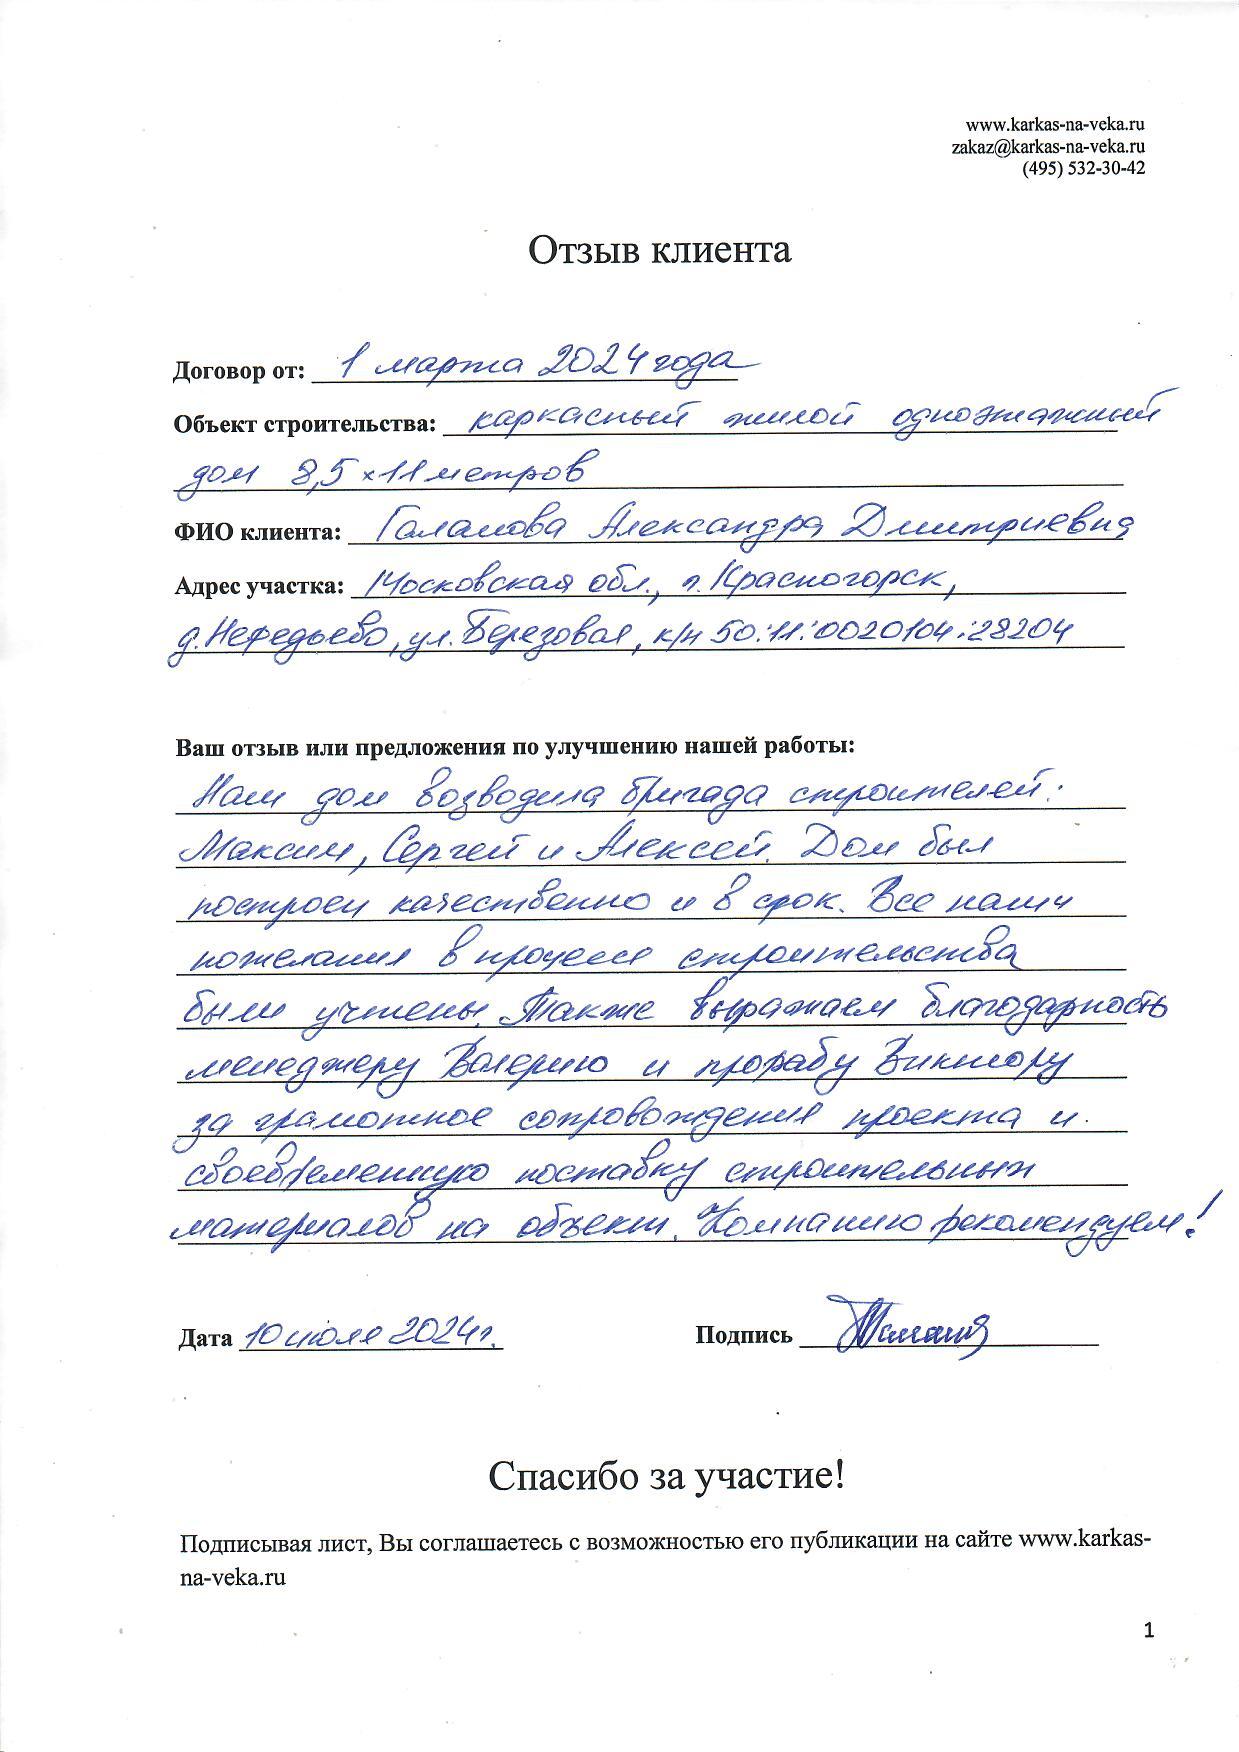 www.karkas-na-veka.ru
zakaz@karkas-na-veka.ru
(495) 532-30-42
Отзыв клиента
Договор от: 1 марта 2024 года
Объект строительства: каркасный жилой одноэтажный
дом 8,5 х 11 метров
ФИО клиента: Александра Дмитриевна
Адрес участка: Московская обл., г. Красногорск,
д. Нефедьево, ул. Березовая, к/н 50:11:0020104:28204
Ваш отзыв или предложения по улучшению нашей работы:
Наш дом возводила бригада строителей:
Максим, Сергей и Алексей. Дом был
построен качественно и в срок. Все наши
пожелания в процессе строительства
были учтены. Также выражаем благодарность
менеджеру Валерию и прорабу Виктору
за грамотное сопровождение проекта и
своевременную поставку строительных
материалов на объект. Компанию рекомендуем!
Дата 10 июля 2024г. Подпись
Спасибо за участие!
Подписывая лист, Вы соглашаетесь с возможностью его публикации на сайте www.karkas-
na-veka.ru
1